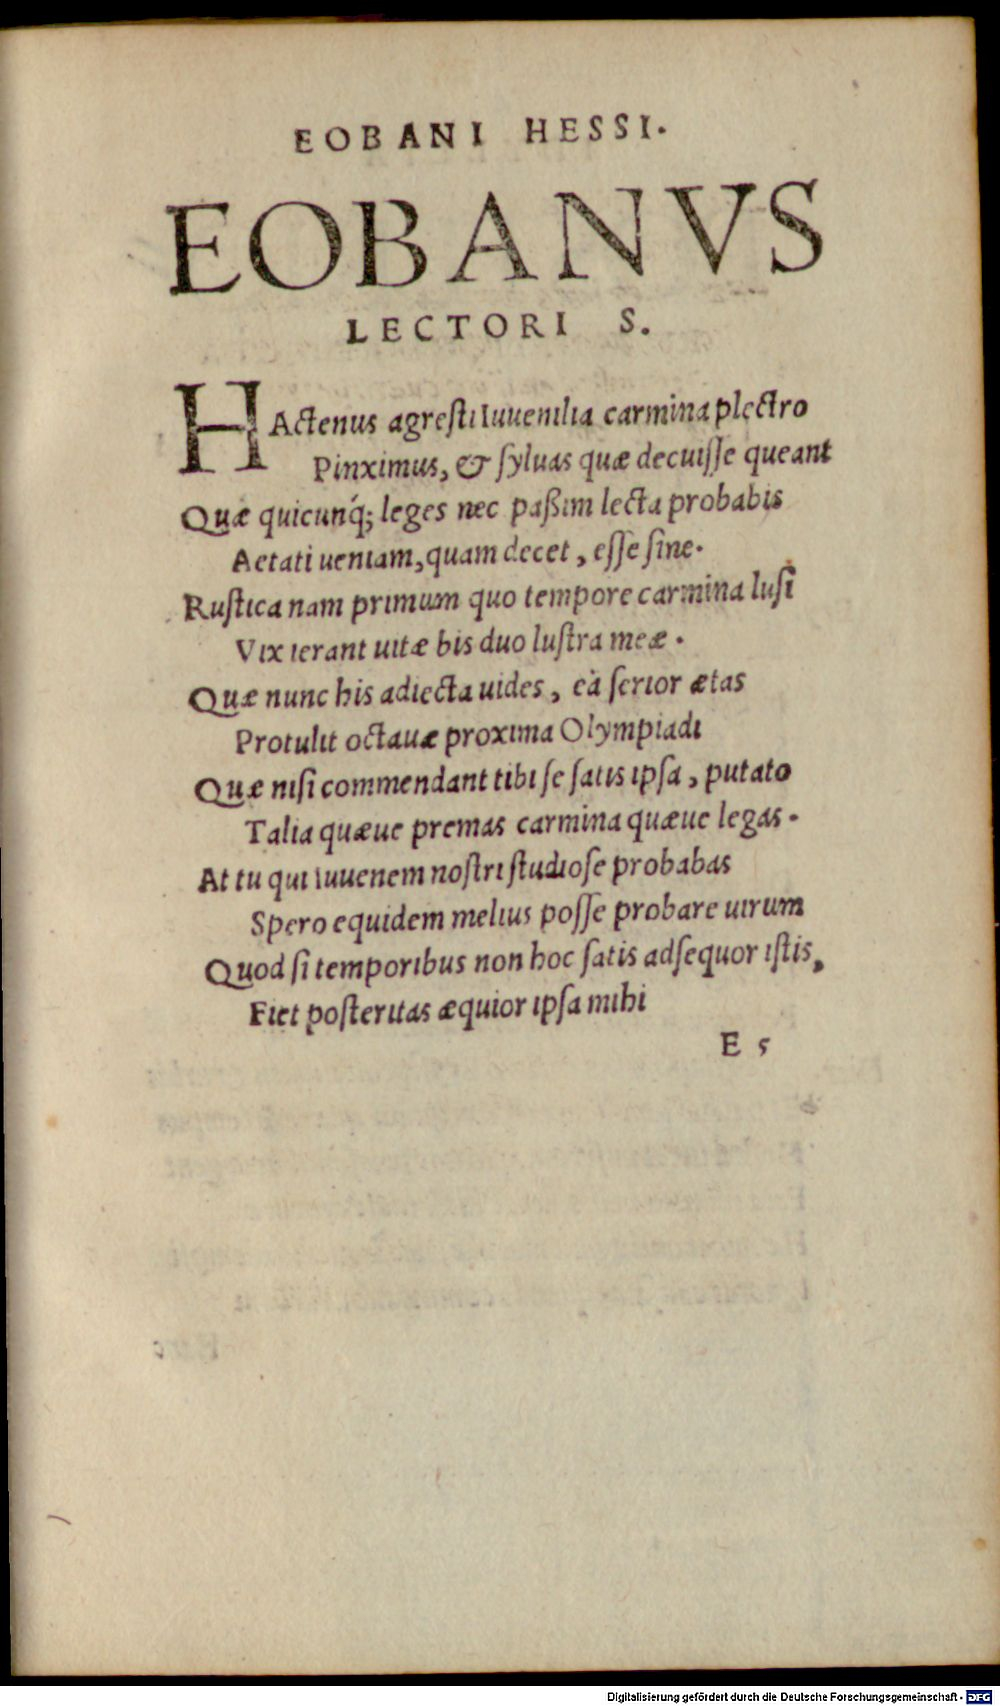 EOBANI HESSI.
EOBANVS
LECTORI S.
HActenus agreſti Iuuenilia carmina plectro
Pinximus, & ſyluas quæ decuiſſe queant
Quæ quicunq́; leges nec paßim lecta probabis
Aetati ueniam, quam decet, eſſe ſine.
Ruſtica nam primum quo tempore carmina luſi
Vix ierant uitæ bis duo luſtra meæ.
Quæ nunc his adiecta uides, eà ſerior ætas
Protulit octauæ proxima Olympiadi
Quæ niſi commendant tibi ſe ſatis ipſa, putato
Talia quæue premas carmina quæue legas.
At tu qui Iuuenem noſtri ſtudioſe probabas
Spero equidem melius poſſe probare uirum
Quod ſi temporibus non hoc ſatis adſequor iſtis,
Fiet poſteritas æquior ipſa mihi
E 5
Digitalisierung gefördert durch die Deutsche Forschungsgemeinschaft - DFG